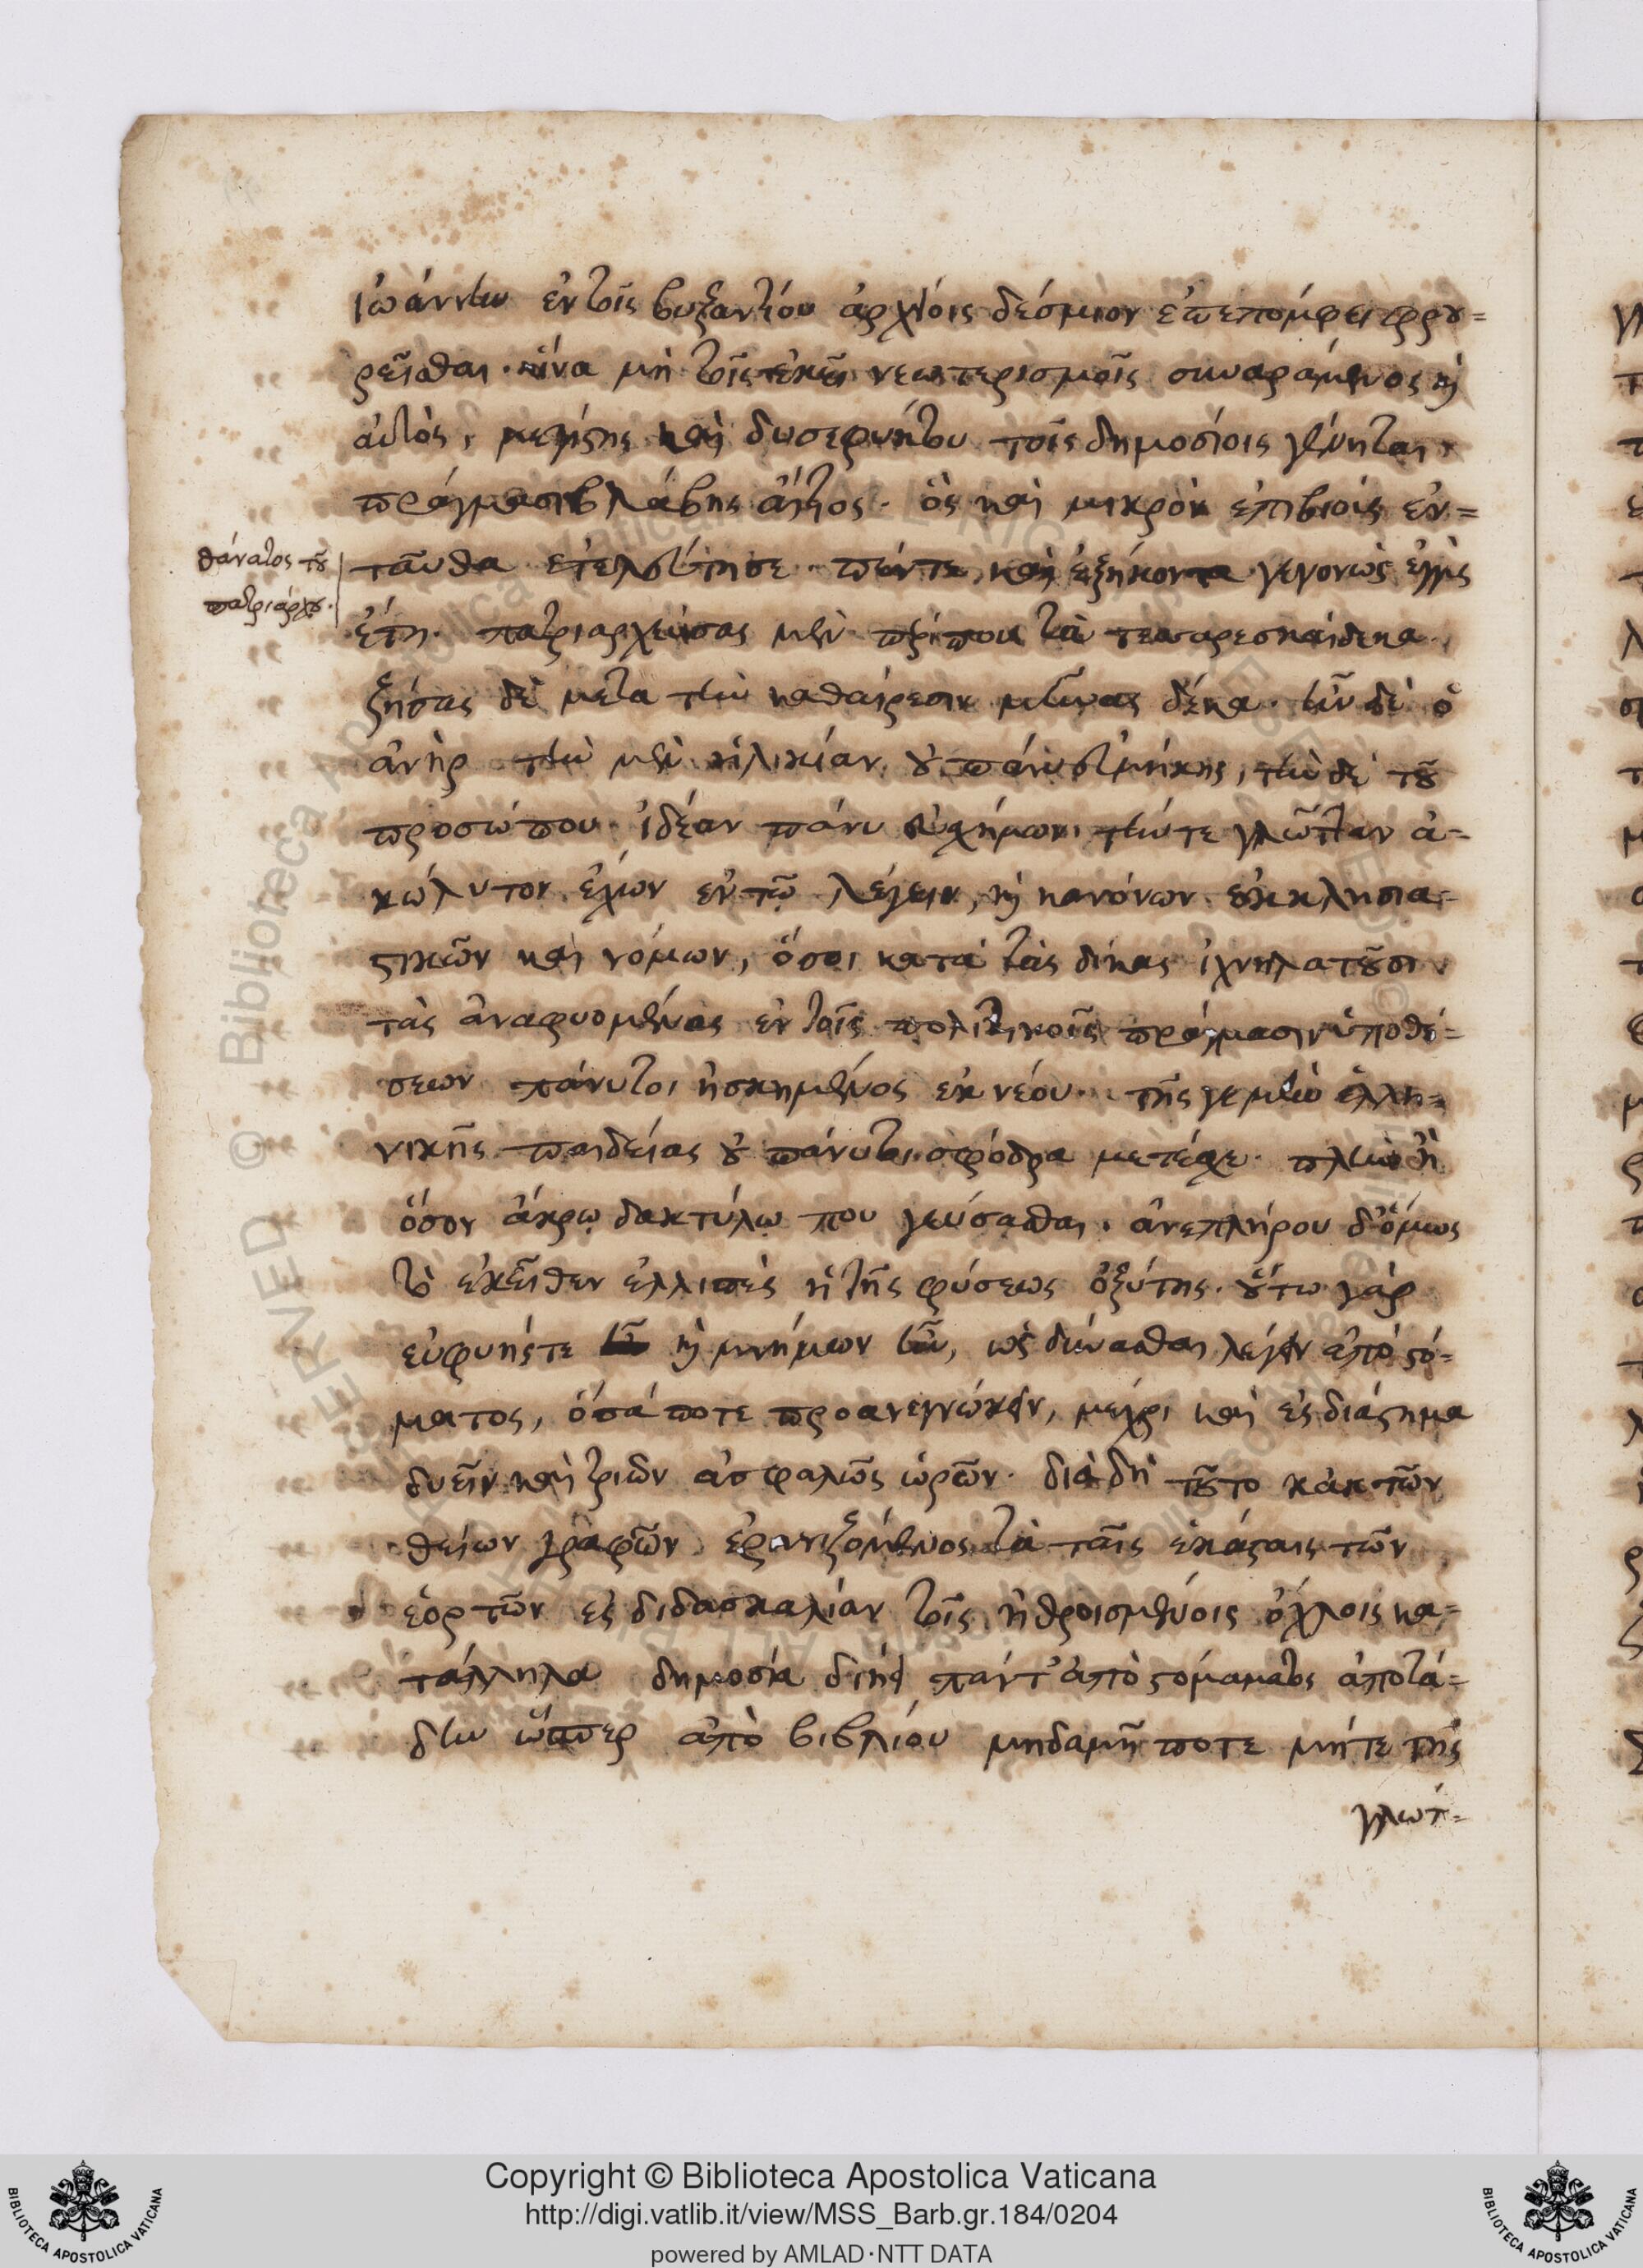 ἰωάννην ἐν τοῖς βυζαντίου ἀρχείοις δέσμιον ἐπεπόμφει φρου=
ρεῖσθαι. ἵνα μὴ τοῖς ἐκεῖ νεωτερισμοῖς συναράμενος καὶ
αὐτὸς, μεγίστης καὶ δυσεφικήτου τοῖς δημοσίοις γένηται
πράγμασι βλάβης αἴτιος. ὃς καὶ μικρὸν ἐπιβιοὺς ἐν=
ταῦθα ἐτελεύτησε. πέντε καὶ ἑξήκοντα γεγονὼς ἐγγὺς
θάνατος τοῦ
πατριάρχου.
ἔτη. πατριαρχεύσας μὲν περί που τὰ τεσσαρεσκαίδεκα.
ζήσας δὲ μετὰ τὴν καθαίρεσιν μῆνας δέκα. ἦν δὲ ὁ
ἀνὴρ τὴν μὲν ἡλικίαν οὐ πάνυ εὐμήκης, τὴν δὲ τοῦ
προσώπου ἰδέαν πάνυ εὐσχήμων. τήν τε γλῶτταν ἀ=
κώλυτον ἔχων ἐν τῷ λέγειν, καὶ κανόνων ἐκκλησια=
στικῶν καὶ νόμων, ὅσοι κατὰ τὰς δίκας ἰχνηλατοῦσι
τὰς ἀναφυομένας ἐν τοῖς πολιτικοῖς πράγμασιν ὑποθέ=
σεων πάνυ τοι ἠσκημένος ἐκ νέου. τῆς γε μὴν ἑλλη=
νικῆς παιδείας οὐ πάνυ τοι σφόδρα μετέσχε. πλὴν ἢ
ὅσον ἄκρῳ δακτύλῳ που γεύσασθαι. ἀνεπλήρου δ' ὅμως
τὸ ἐκεῖθεν ἐλλιπὲς ἡ τῆς φύσεως ὀξύτης. οὕτω γὰρ
εὐφυής τε καὶ μνήμων ἦν, ὡς δύνασθαι λέγειν ἀπὸ στό=
ματος, ὅσά ποτε προανεγνώκειν, μέχρι καὶ ἐς διάστημα
δυεῖν καὶ τριῶν ἀσφαλῶς ὡρῶν. διὰ δὴ τοῦτο κἀκ τῶν
θείων γραφῶν ἐρανιζόμενος τὰ ταῖς ἑκάσταις τῶν
ἑορτῶν ἐς διδασκαλίαν τοῖς ἠθροισμένοις ὄχλοις κα=
τάλληλα δημοσίᾳ διῄει πάντ' ἀπὸ στόματος ἀποτά=
δην ὥσπερ ἀπὸ βιβλίου μηδαμῆ ποτε μήτε τῆς
γλώτ=
Copyright © Biblioteca Apostolica Vaticana
http://digi.vatlib.it/view/MSS_Barb.gr.184/0204
powered by AMLAD·NTT DATA
BIBLIOTECA APOSTOLICA VATICANA
BIBLIOTECA APOSTOLICA VATICANA